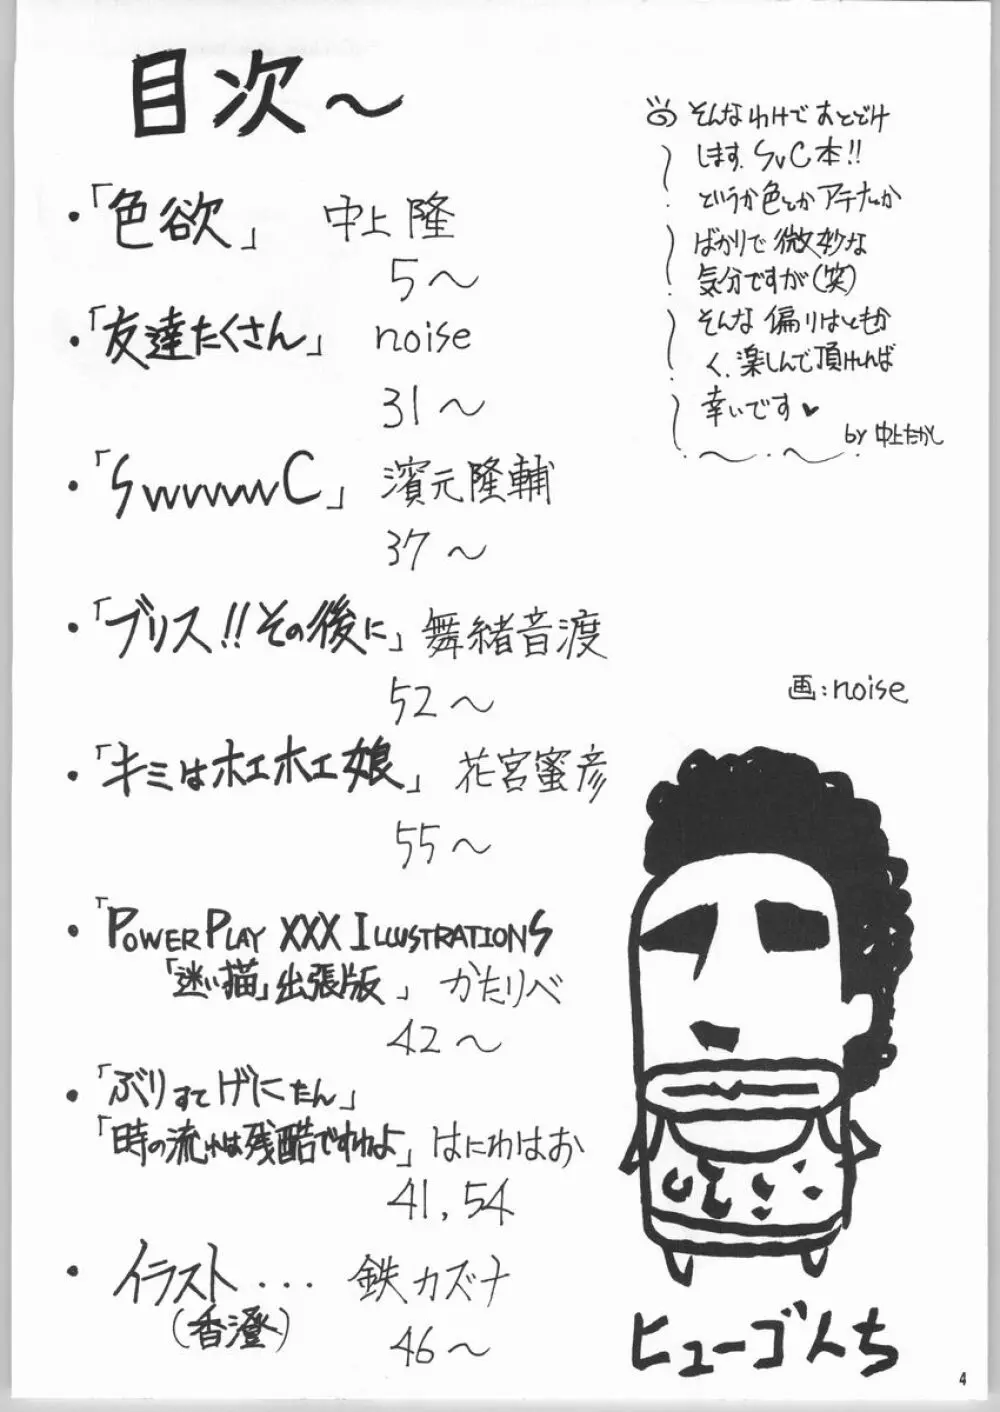 目次～
・「色欲」 中上隆
5～
・「友達たくさん」 noise
31～
・「SwvwwwC」 濱元隆輔
37～
・「ブリス!!その後に」 舞緒音渡
52～
・「キミはホエホエ娘」 花宮蜜彦
55～
・「POWER PLAY XXX ILLUSTRATIONS
「迷い描」出張版」 かたりべ
42～
・「ぶりすてげにたん」
「時の流れは残酷ですわよ」 はにわはお
41,54
・イラスト... 鉄カズナ
(香澄)
46～
そんなわけでおとどけ
します、SvC本!!
というか色とかアテナとか
ばかりで微妙な
気分ですが(笑)
そんな偏りはともか
く、楽しんで頂ければ
幸いです♥
by 中上たかし
画:noise
ヒューゴんち
4